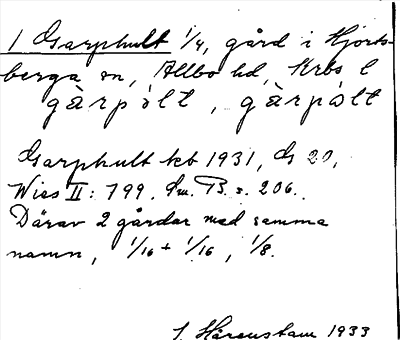 1 Garphult 1/4, gård i Hjorts-
berga sn, Allbo hd, Krbs l
gàrpúlt, gàrpúlt
Garphult kb 1931, G 20,
Wies II: 799. Sm. B. s. 206.
Därav 2 gårdar med samma
namn, 1/16 + 1/16, 1/8.
J. Hårenstam 1933